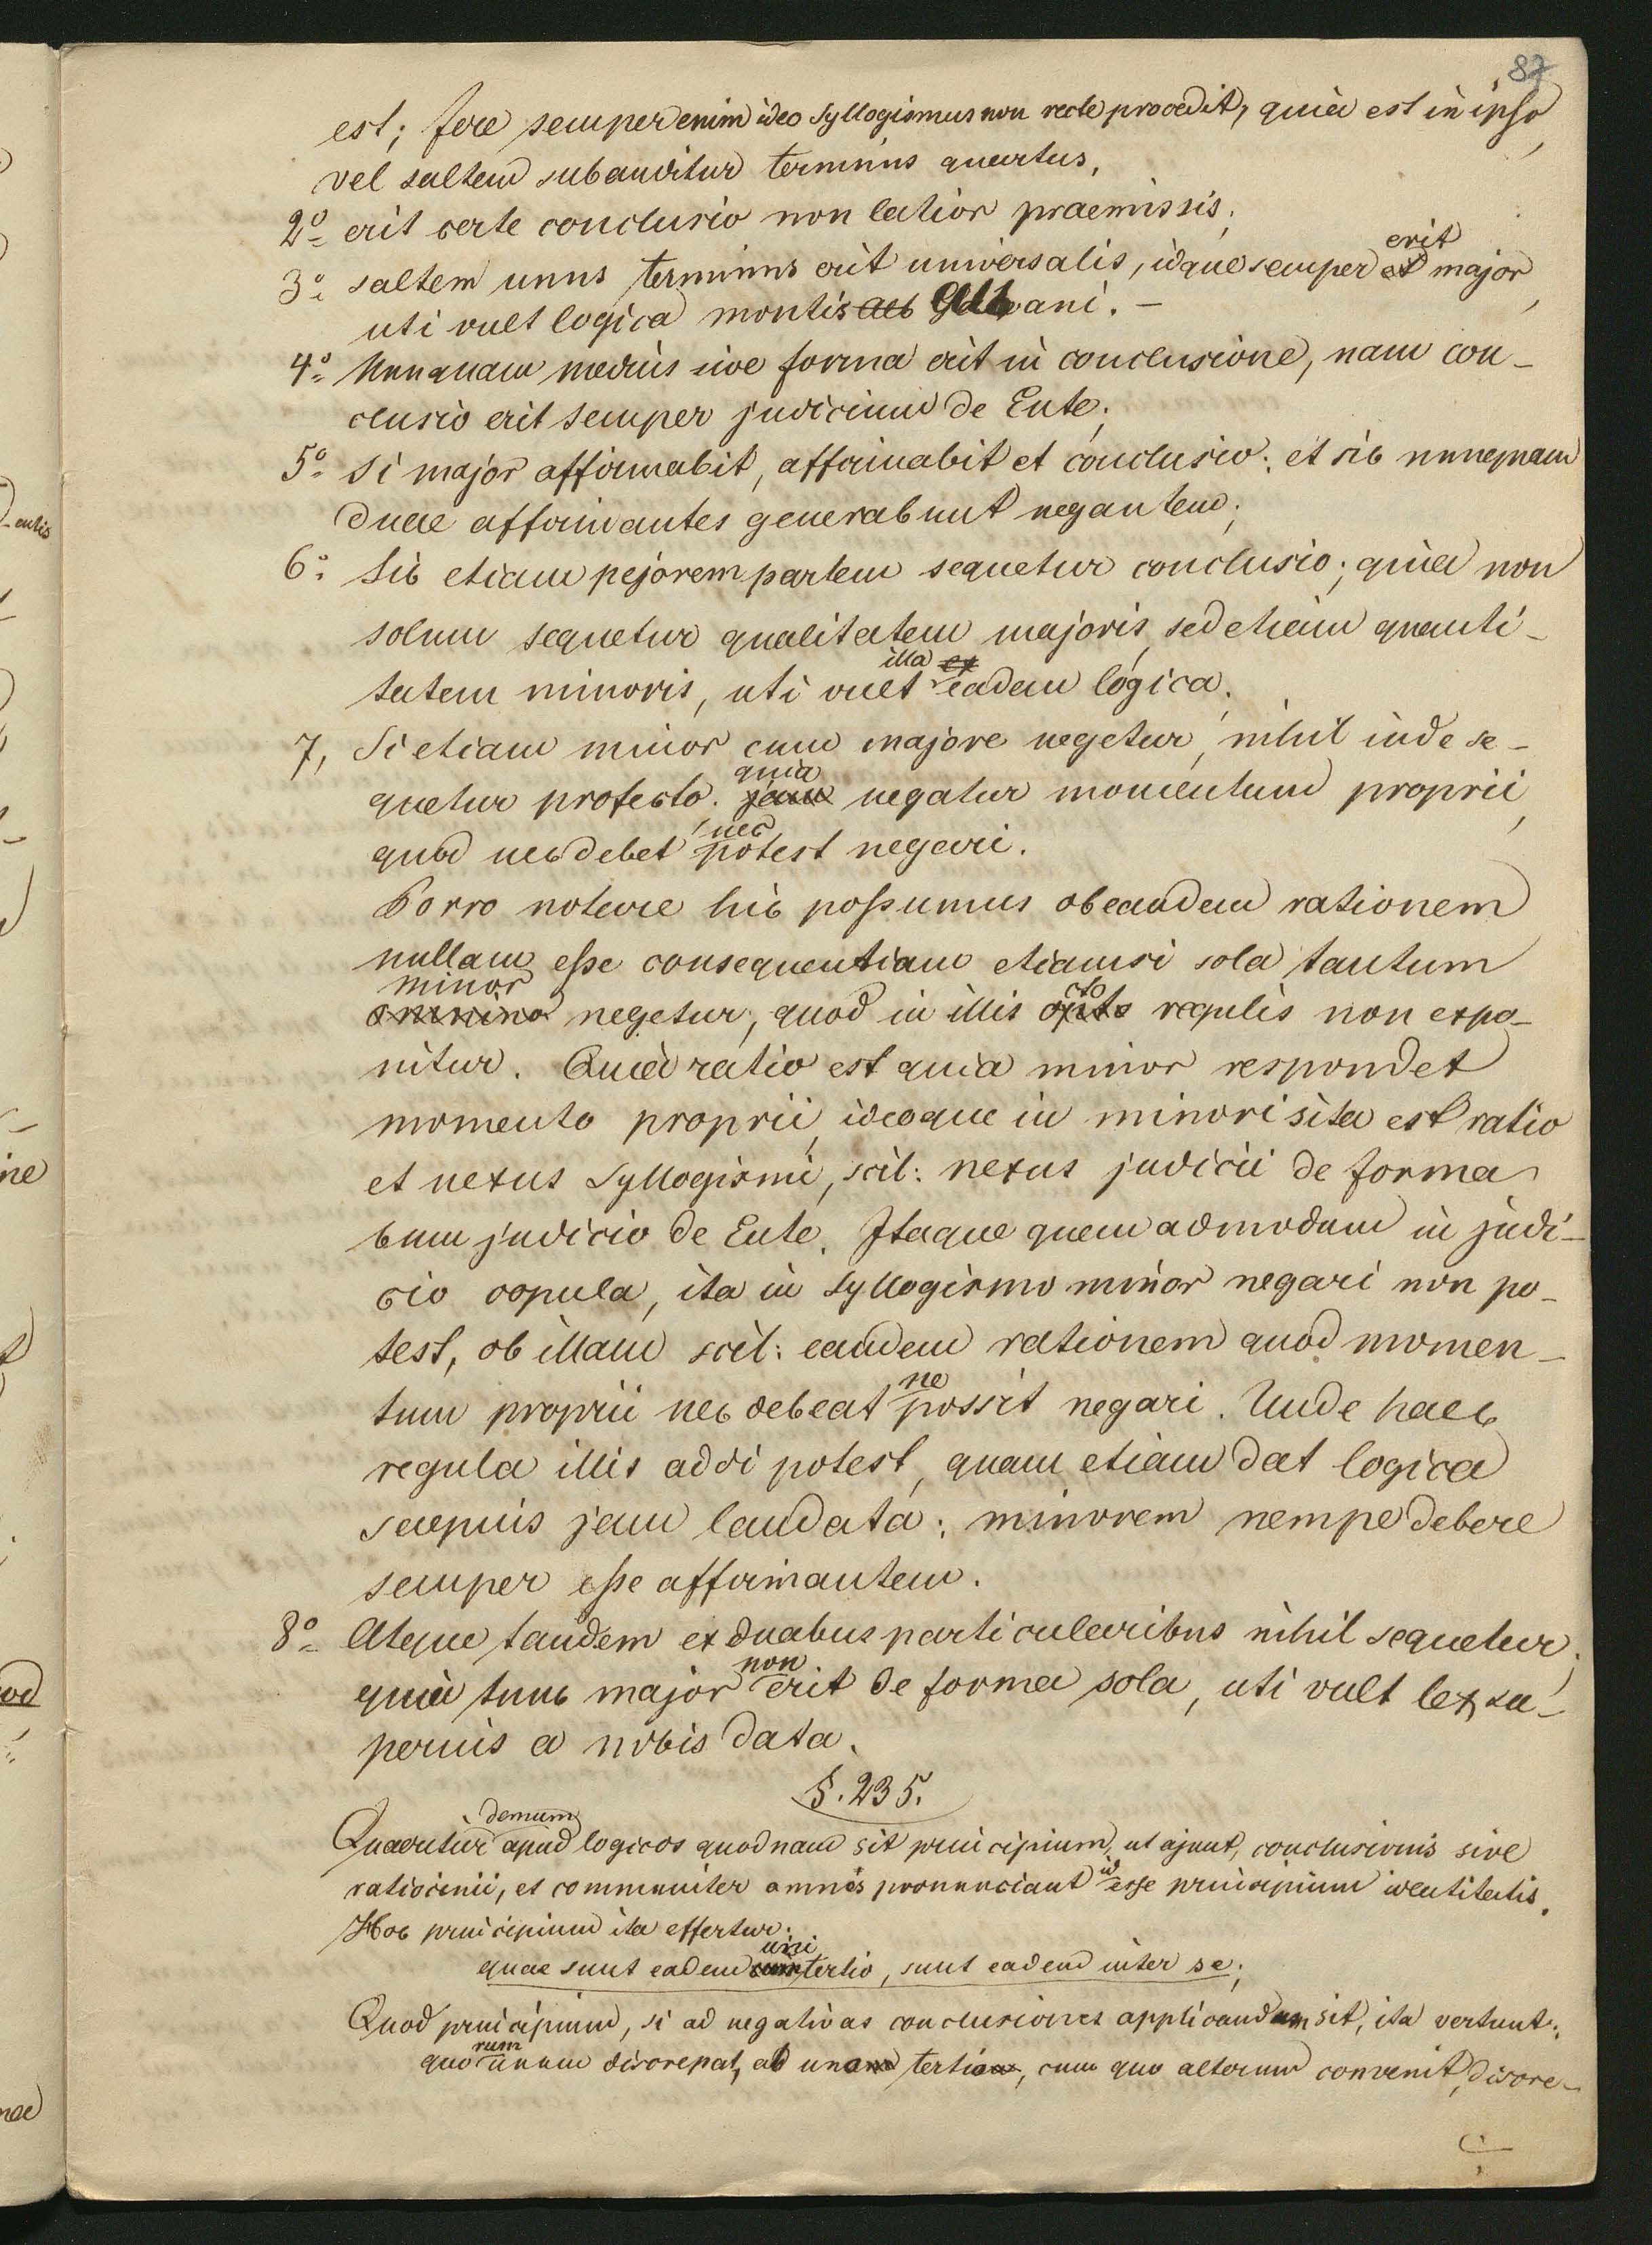 87
est; fere semper enim ideo syllogismus non recte procedit, quia est in ipso,
vel saltem subauditur terminus quartus,
2o erit certe conclusio non latior praemissis;
3o saltem unus terminus erit universalis, idque semper erit major,
uti vult logica montis albani. –
4o Nunquam medius sive forma erit in conclusione, nam con-
clusio erit semper judicium de Ente;
5o Si major affirmabit, affirmabit et conclusio; et sic nunquam
duae affirmantes generabunt negantem;
6o Sic etiam pejorem partem sequetur conclusio; quia non
solum sequetur qualitatem majoris, sed etiam quanti-
tatem minoris, uti vult illa eadem logica;
7, Si etiam minor cum majore negetur, nihil inde se-
quetur profecto. quia negatur momentum proprii,
quod nec debet, nec potest negari.
Porro notare hic possumus ob eandem rationem
nullam esse consequentiam etiamsi sola tantum
minor negetur, quod in illis octo regulis non expo-
nitur. Quia ratio est quia minor respondet
momento proprii, ideoque in minori sita est ratio
et nexus syllogismi, scil: nexus judicii de forma
cum judicio de Ente. Itaque quemadmodum in judi-
cio copula, ita in syllogismo minor negari non po-
test, ob illam scil: eandem rationem quod momen-
tum proprii nec debeat ne possit negari. Unde haec
regula illis addi potest, quam etiam dat logica
saepius jam laudata: minorem nempe debere
semper esse affirmantem.
8o Atque tandem ex duabus particularibus nihil sequetur;
quia tunc major non erit de forma sola, uti vult lex su-
perius a nobis data.
§. 235.
Quaeritur demum apud logicos quodnam sit principium, ut ajunt, conclusionis sive
ratiocinii, et communiter omnes pronunciant id esse principium identitatis.
Hoc principium ita effertur:
quae sunt eadem uni tertio, sunt eadem inter se;
Quod principium, si ad negativas conclusiones applicandum sit, ita vertunt:
quorum unum discrepat, ab uno tertio, cum quo alterum convenit, discre-